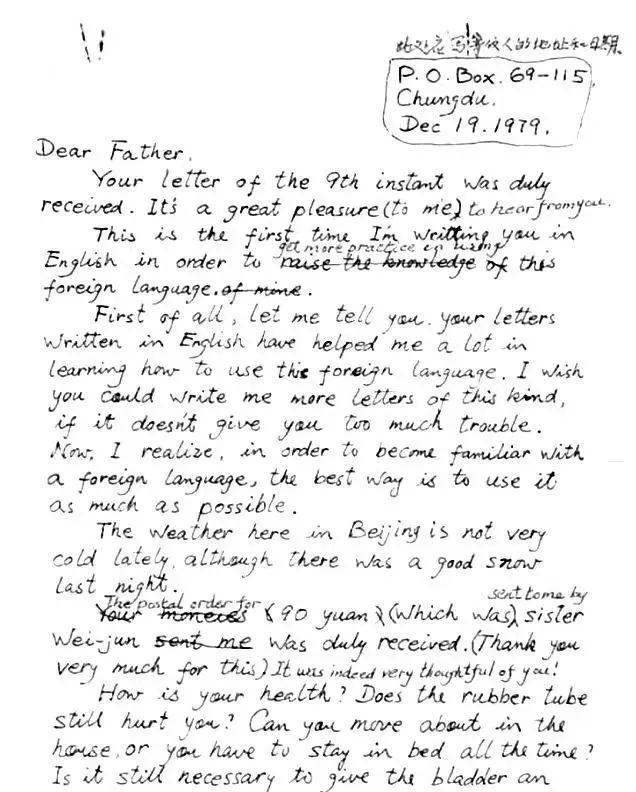 此处应写寄信人的地址和日期.
P.O. Box. 69-115,
Chungdu.
Dec 19.1979,
Dear Father,
Your letter of the 9th instant was duly
received. It's a great pleasure (to me) to hear from you.
This is the first time I'm writting you in
get more practice in using
English in order to raise the knowledge of this
foreign language. of mine.
First of all, let me tell you. your letters
written in English have helped me a lot in
learning how to use this foreign language. I wish
you could write me more letters of this kind,
if it doesn't give you too much trouble.
Now, I realize, in order to become familiar with
a foreign language, the best way is to use it
as much as possible.
The weather here in Beijing is not very
cold lately, although there was a good snow
last night.
The postal order for sent to me by
Your 90 yuan (which was) sister
Wei-jun sent me was duly received. (Thank you
very much for this) It was indeed very thoughtful of you!
How is your health? Does the rubber tube
still hurt you? Can you move about in the
house, or you have to stay in bed all the time?
Is it still necessary to give the bladder an